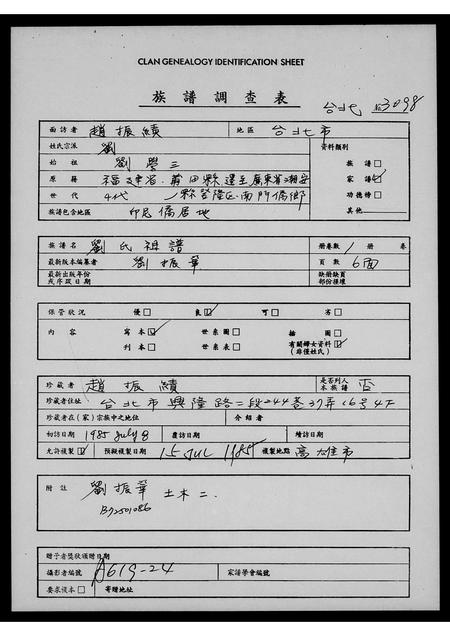 CLAN GENEALOGY IDENTIFICATION SHEET
族譜調查表
台北 3098
面訪者 趙振績 地區 台北市
姓氏宗派 劉 資料類別
始祖 劉學三 族譜□
原籍 福建省莆田縣遷至廣東省潮安 家譜☑
世代 4代 縣登隆區南門僑鄉 功德榜□
族譜包含地區 印尼僑居地 其他
族譜名 劉氏祖譜 册卷數 1 册 卷
最新版本編纂者 劉振華 頁數 6面
最新出版年份 缺册缺頁
或序跋日期 部份種壞
保管狀況 優□ 良☑ 可□ 劣□
內容 寫本☑ 世系圖□ 插圖□
刊本□ 世系表□ 有關婦女資料☑
(非僅姓氏)
珍藏者 趙振績 是否列入本族譜 否
珍藏者住址 台北市興隆路二段244巷37弄16号4F
珍藏者在(家)宗族中之地位 介紹者
初訪日期 1985 July 8 覆訪日期 續訪日期
允許複製☑ 預擬複製日期 15 JUL 1985 複製地點 高雄市
附註 劉振華 土木二.
B72501086
贈予者獎狀頒贈日期
攝影者編號 A619-24 家譜學會編號
要求複本□ 寄贈地址